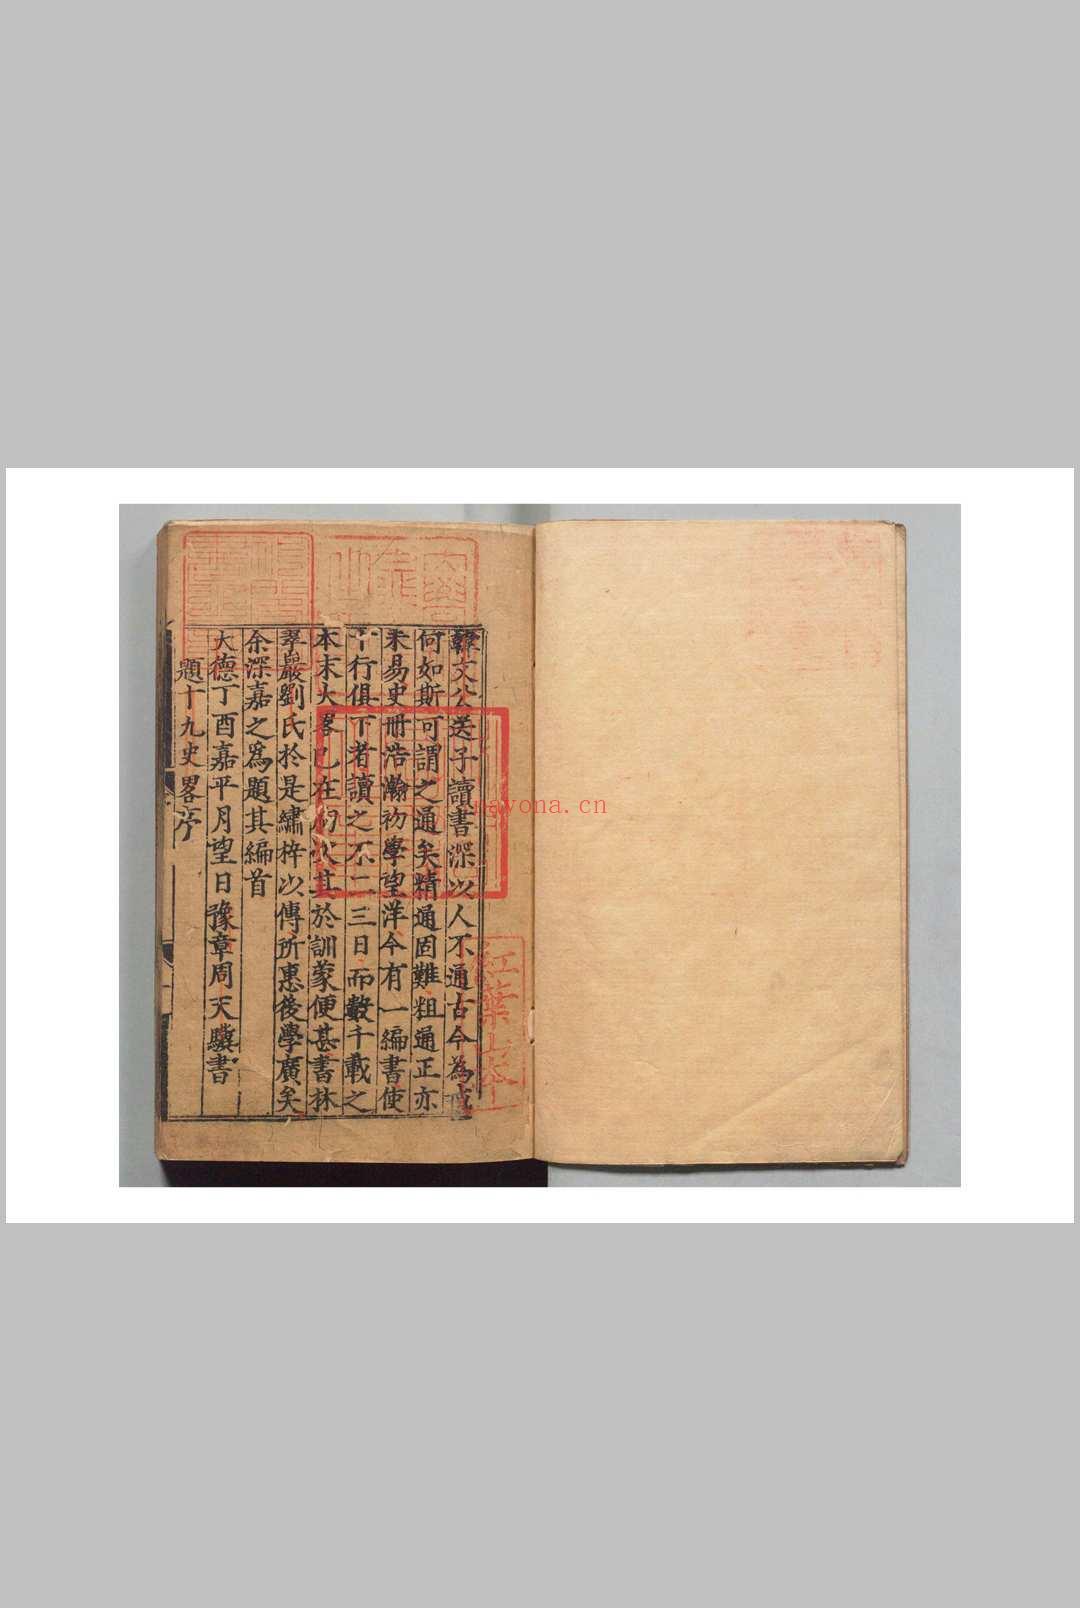 韓文公送子讀書深以人不通古今為戒
何如斯可謂之通矣精通固難粗通正亦
未易史冊浩瀚初學望洋今有一編書使
十行俱下者讀之不二三日而數千載之
本末大畧已在胷次其於訓蒙便甚書林
翠巖劉氏於是繡梓以傳所惠後學廣矣
余深嘉之為題其編首
大德丁酉嘉平月望日豫章周天驥書
題十九史畧序
紅葉山本
nayona.cn